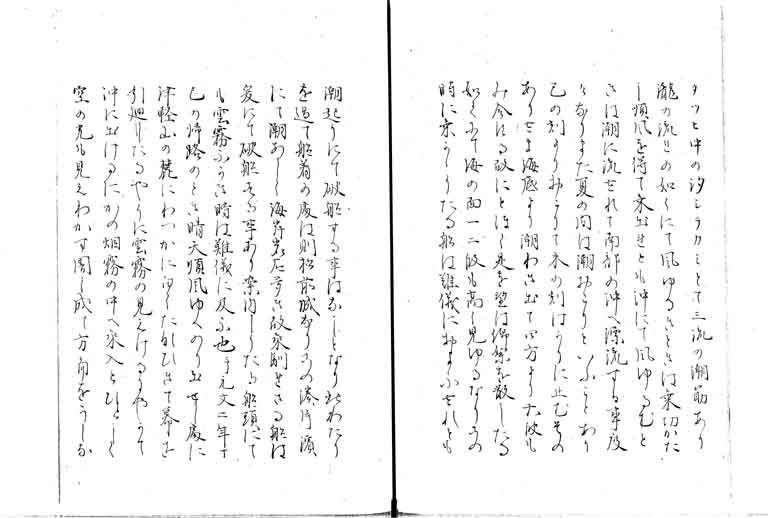 タツヒ中の汐シラカミとて三流の潮筋あり
瀧の流れの如くにて風ゆるきときは乗切かた
し順風を得て乗出せとも沖にて風ゆるむと
きは潮に流されて南部の沖へ漂流する事度
々なりまた夏の間は潮おこりといふことあり
己の刻よりおこりて未の刻はかりに止むその
あり さま海底より潮わき出て四方より大波も
み合ける故にとほく是を望は綿を散したる
如くにて海の面一二段も高く見ゆるなりその
時に乗かゝりたる船は難儀におよふされとも
潮起りにて破船する事はなしとなり此わたり
を過て船着の處は則松前城なりその湊門濱
にて潮あしく海岸岩石多き故乗馴さる船は
爰にて破船する事あり案内しりたる船頭にて
も雲霧ふかき時は難儀に及ふ也予元文二年
の帰路のとき晴天順風ゆへのり出せし處に
津軽山の麓にわつかに白くたなひきて幕を
引廻したるやうに雲霧の見えけるかやかて
沖に出けるにかの烟霧の中へ乗入とひとしく
空の光も見えわかす闇と成て方角をうしな